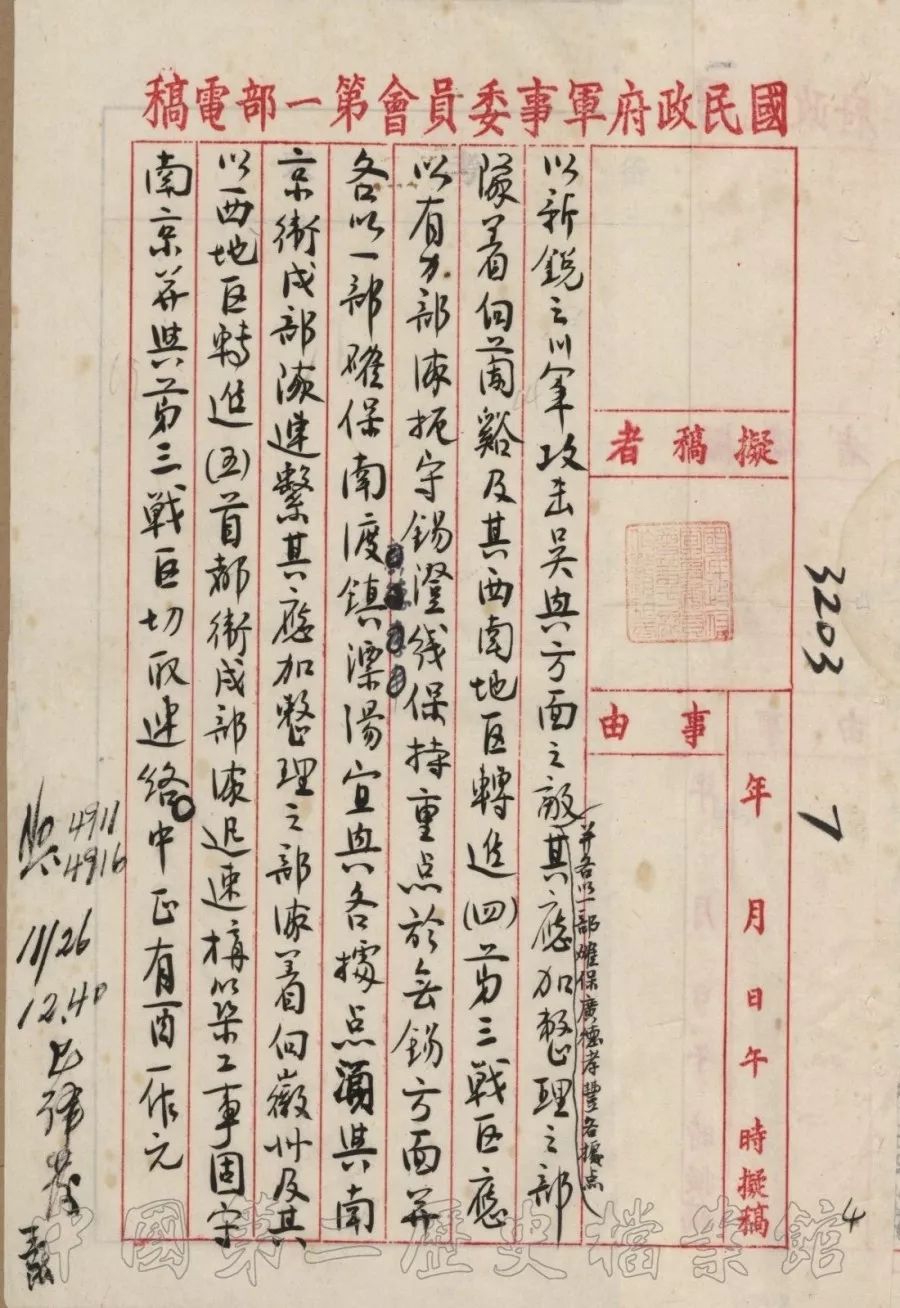 國民政府軍事委員會第一部電稿
擬稿者
事由
年 月 日 午 時擬稿
3203
7
以新銳之川軍攻击吴興方面之敵其應加整理之部
并各以一部確保廣德孝豐各據点
隊着向蘭谿及其西南地区轉進(四)第三戰区應
以有力部隊扼守錫澄线保持重点於无錫方面并
各以一部確保南渡鎮溧陽宜興各據点須與南
京衛戍部隊連繫其應加整理之部隊着向徽州及其
以西地区轉進(五)首都衛戍部隊迅速構築工事固守
南京并與第三戰区切取連絡中正有酉一作元
No. 4911
4916
11/26
12.40
4
中國第二歷史檔案館